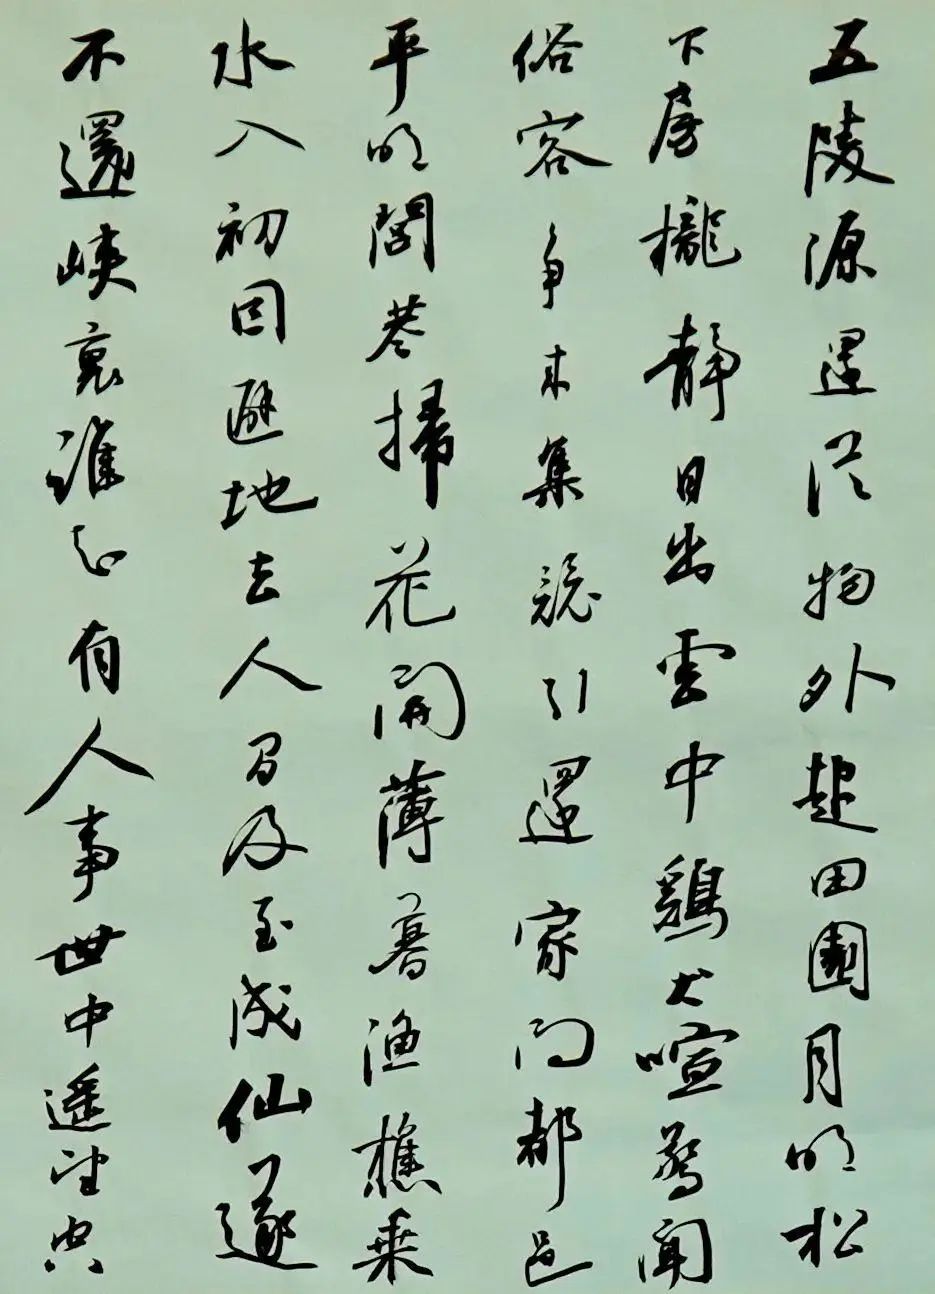 五陵源還從物外起田園月明松
下房櫳靜日出雲中鷄犬喧驚聞
俗客争來集競引還家問都邑
平明閭巷掃花開薄暮漁樵乘
水入初因避地去人間及至成仙遂
不還峽裏誰知有人事世中遥望空